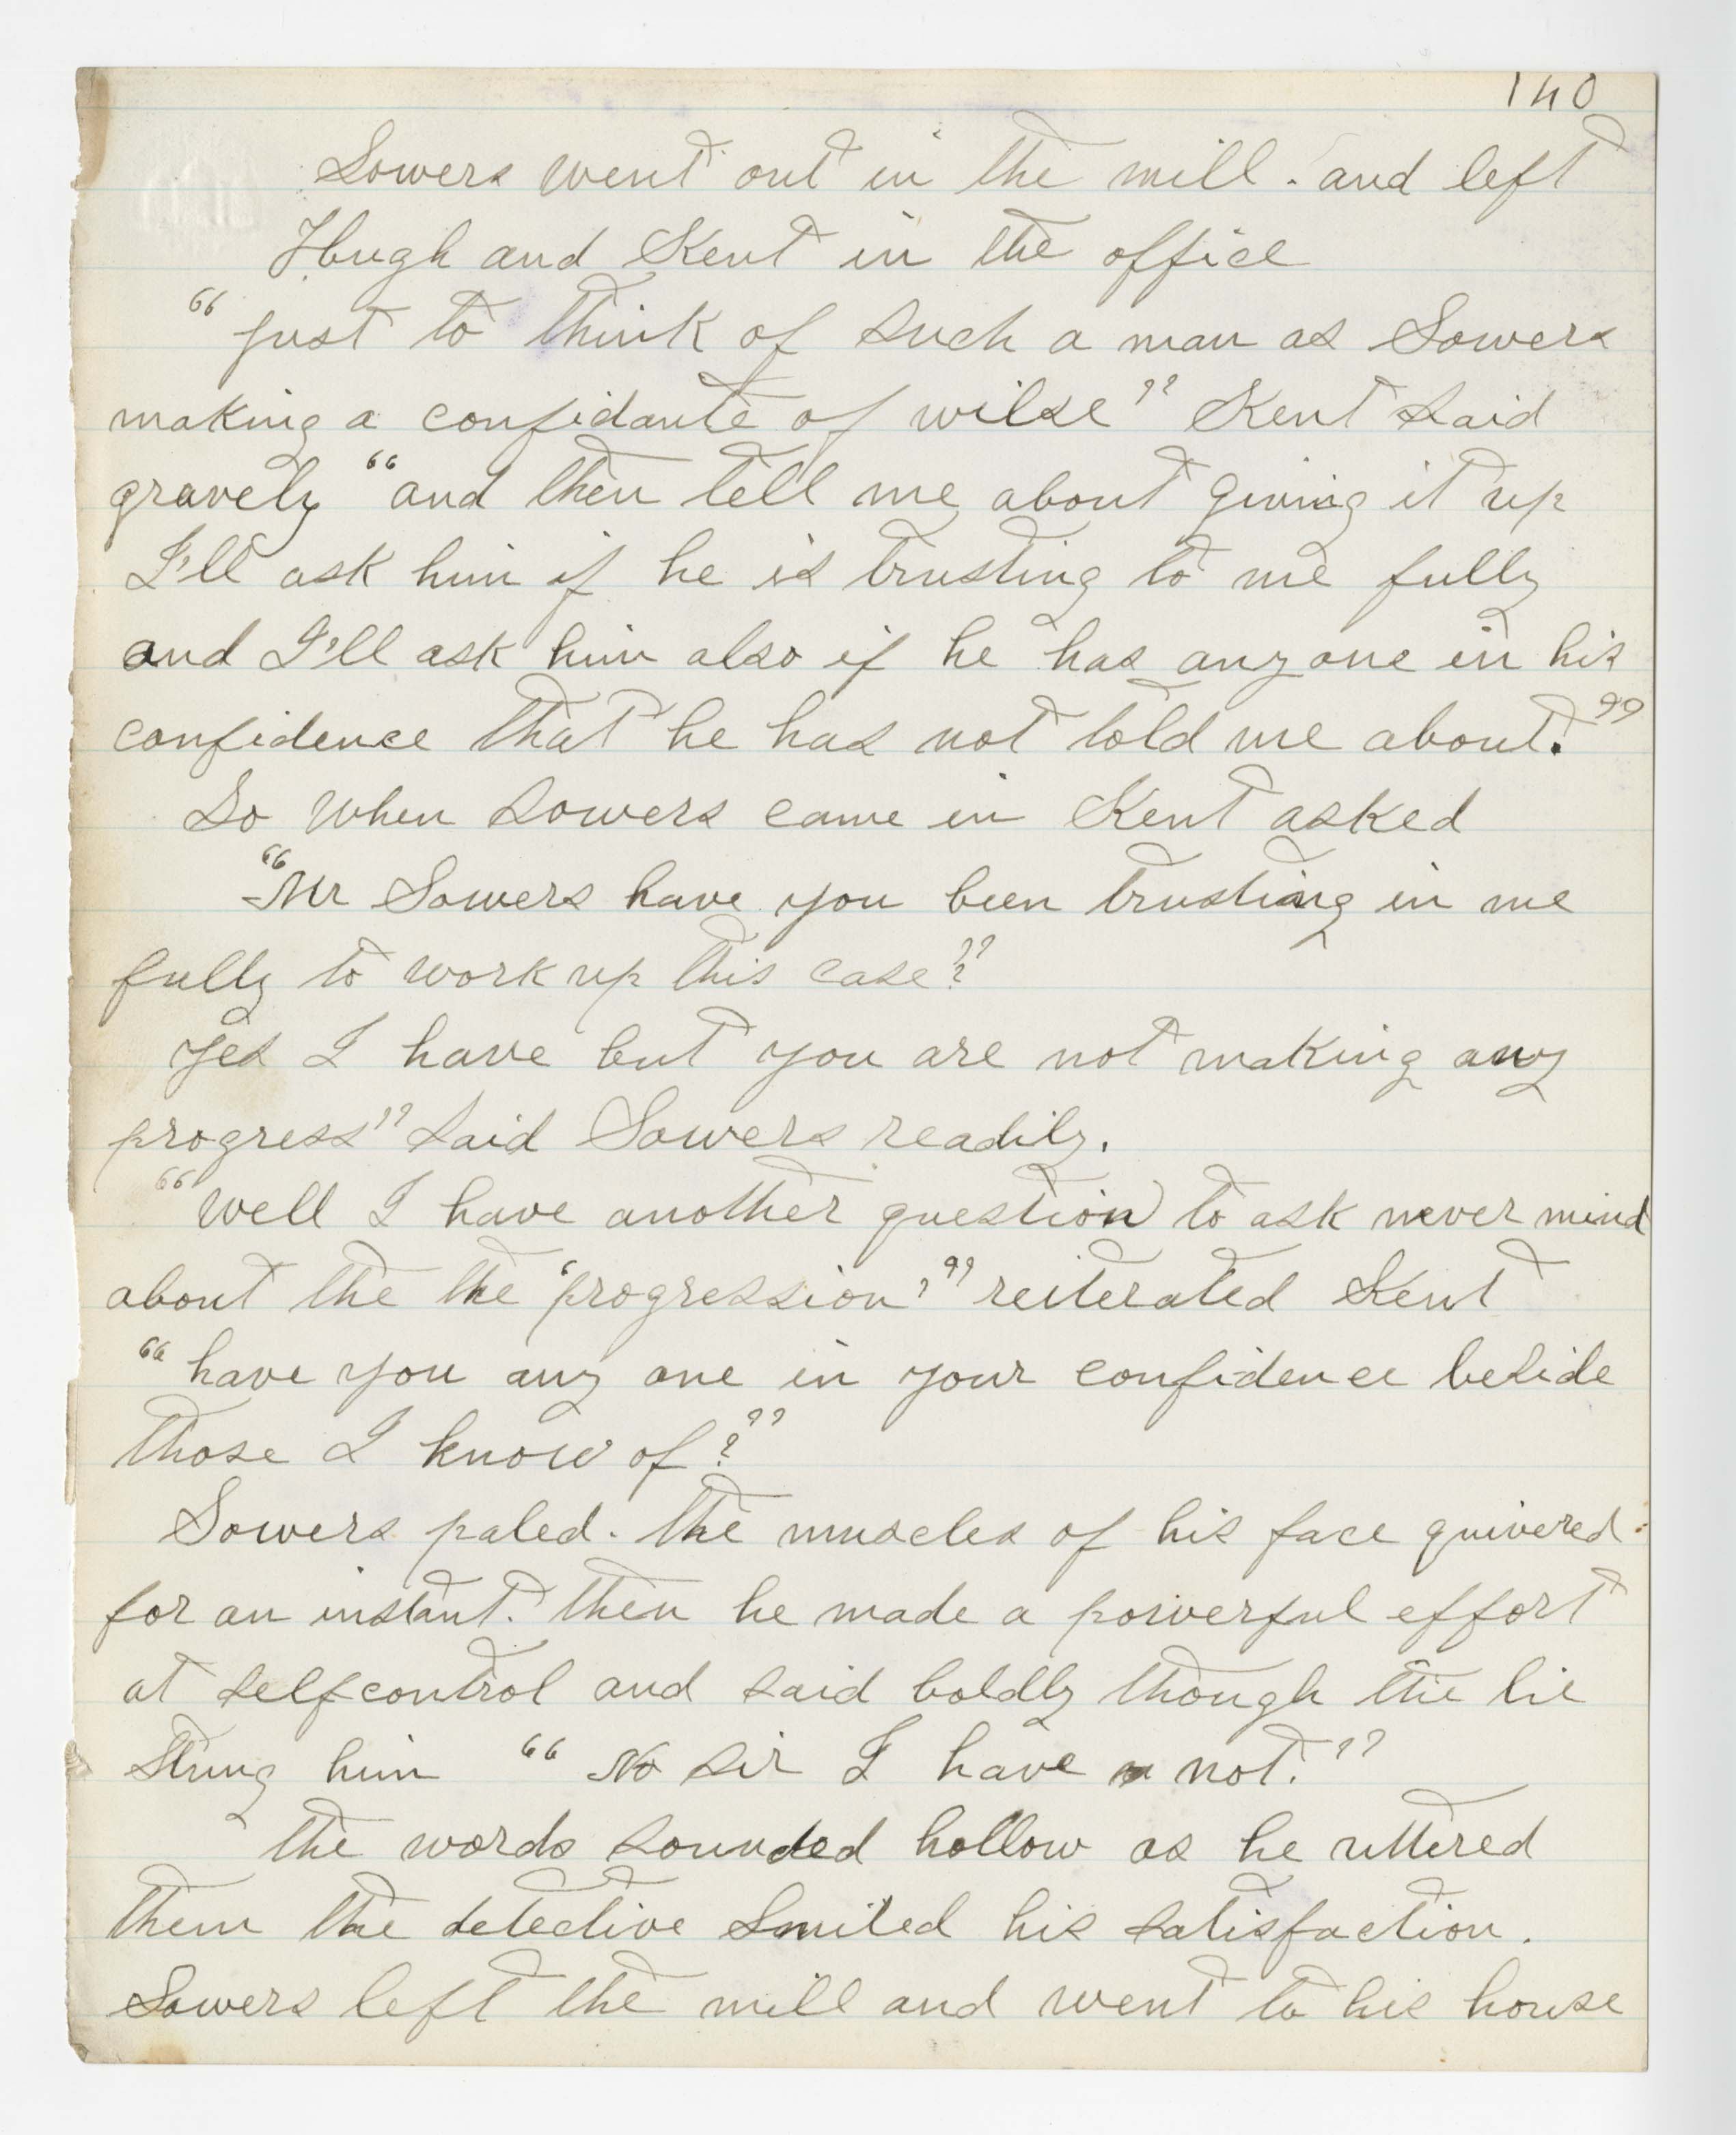 140
Sowers went out in the mill. and left
Hugh and Kent in the office
"just to think of such a man as Sowers
making a confidante of wilse" Kent said
gravely "and then tell me about giving it up
I'll ask him if he is trusting to me fully
and I'll ask him also if he has anyone in his
confidence that he has not told me about."
So when Sowers came in Kent asked
"Mr Sowers have you been trusting in me
fully to work up this case?"
Yes I have but you are not making any
progress" said Sowers readily.
"well I have another question to ask never mind
about the the 'progression'" reiterated Kent
"have you any one in your confidence beside
those I know of?"
Sowers paled. the muscles of his face quivered
for an instant. then he made a powerful effort
at selfcontrol and said boldly though the lie
stung him "No sir I have not."
the words sounded hollow as he uttered
them the detective smiled his satisfaction.
Sowers left the mill and went to his house